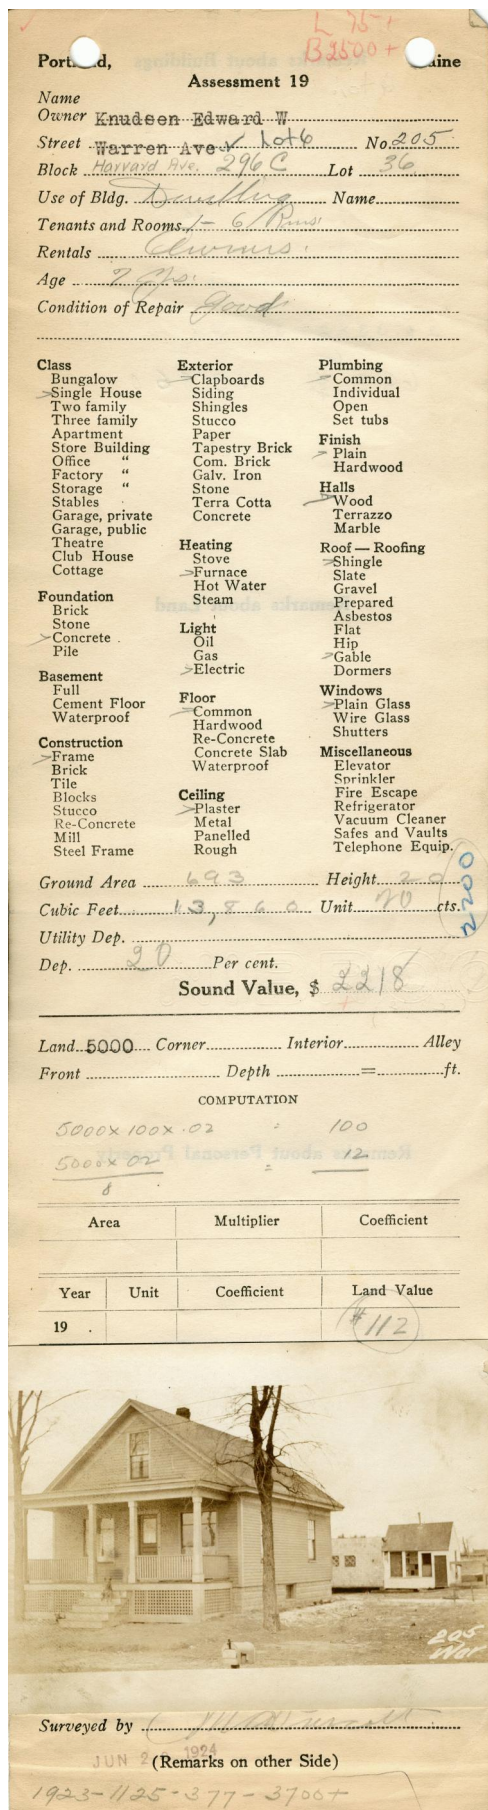 L 75+
B 2500 +
Portland, Maine
Assessment 19
Name
Owner Knudsen Edward W
Street Warren Ave Lot 6 No. 205
Block Harvard Ave. 296 C Lot 36
Use of Bldg. Dwelling Name
Tenants and Rooms 1- 6 Rms.
Rentals Owners.
Age 7 yrs.
Condition of Repair Good
Class
Bungalow
Single House
Two family
Three family
Apartment
Store Building
Office "
Factory "
Storage "
Stables
Garage, private
Garage, public
Theatre
Club House
Cottage
Foundation
Brick
Stone
Concrete
Pile
Basement
Full
Cement Floor
Waterproof
Construction
Frame
Brick
Tile
Blocks
Stucco
Re-Concrete
Mill
Steel Frame
Exterior
Clapboards
Siding
Shingles
Stucco
Paper
Tapestry Brick
Com. Brick
Galv. Iron
Stone
Terra Cotta
Concrete
Heating
Stove
Furnace
Hot Water
Steam
Light
Oil
Gas
Electric
Floor
Common
Hardwood
Re-Concrete
Concrete Slab
Waterproof
Ceiling
Plaster
Metal
Panelled
Rough
Plumbing
Common
Individual
Open
Set tubs
Finish
Plain
Hardwood
Halls
Wood
Terrazzo
Marble
Roof — Roofing
Shingle
Slate
Gravel
Prepared
Asbestos
Flat
Hip
Gable
Dormers
Windows
Plain Glass
Wire Glass
Shutters
Miscellaneous
Elevator
Sprinkler
Fire Escape
Refrigerator
Vacuum Cleaner
Safes and Vaults
Telephone Equip.
Ground Area 693 Height 20
Cubic Feet 13,860 Unit 20 cts.
2200
Utility Dep.
Dep. 20 Per cent.
Sound Value, $ 2218
Land 5000 Corner Interior Alley
Front Depth = ft.
COMPUTATION
5000 x 100 x .02 = 100
5000 x 02 = 12
8
Area Multiplier Coefficient
Year Unit Coefficient Land Value
19 . $112
205
War
Surveyed by
JUN 2 1924
(Remarks on other Side)
1923-1125-377-3700+